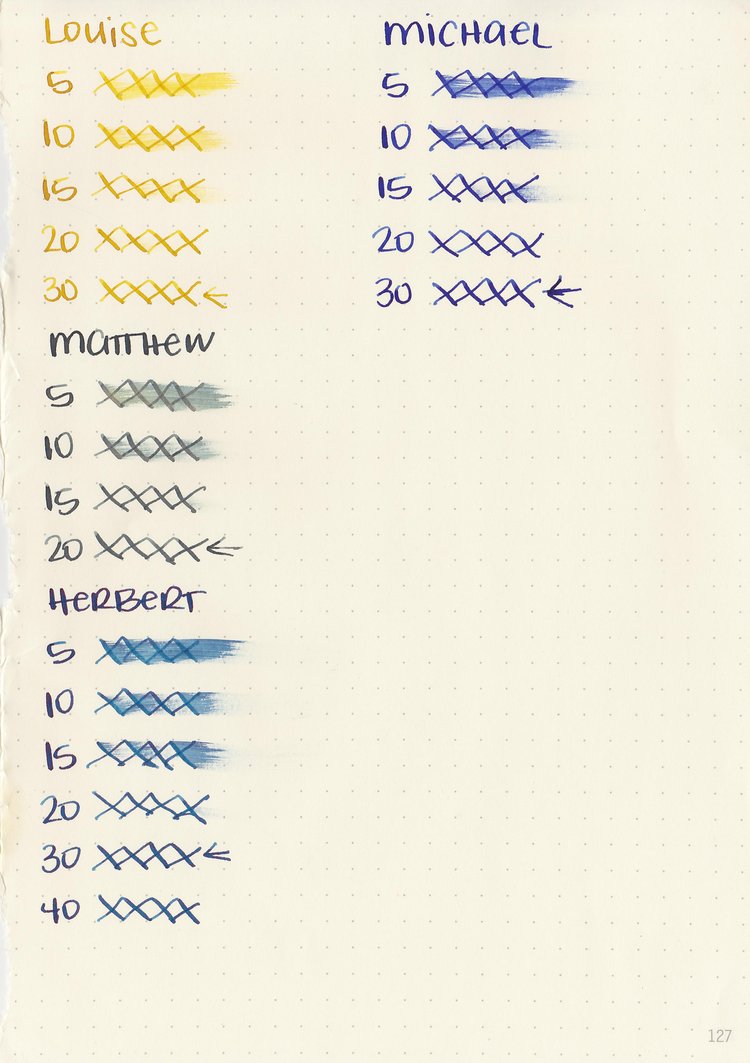 Louise
5 XXXX
10 XXXX
15 XXXX
20 XXXX
30 XXXX ←
Matthew
5 XXXX
10 XXXX
15 XXXX
20 XXXX ←
Herbert
5 XXXX
10 XXXX
15 XXXX
20 XXXX
30 XXXX ←
40 XXXX
Michael
5 XXXX
10 XXXX
15 XXXX
20 XXXX
30 XXXX ←
127